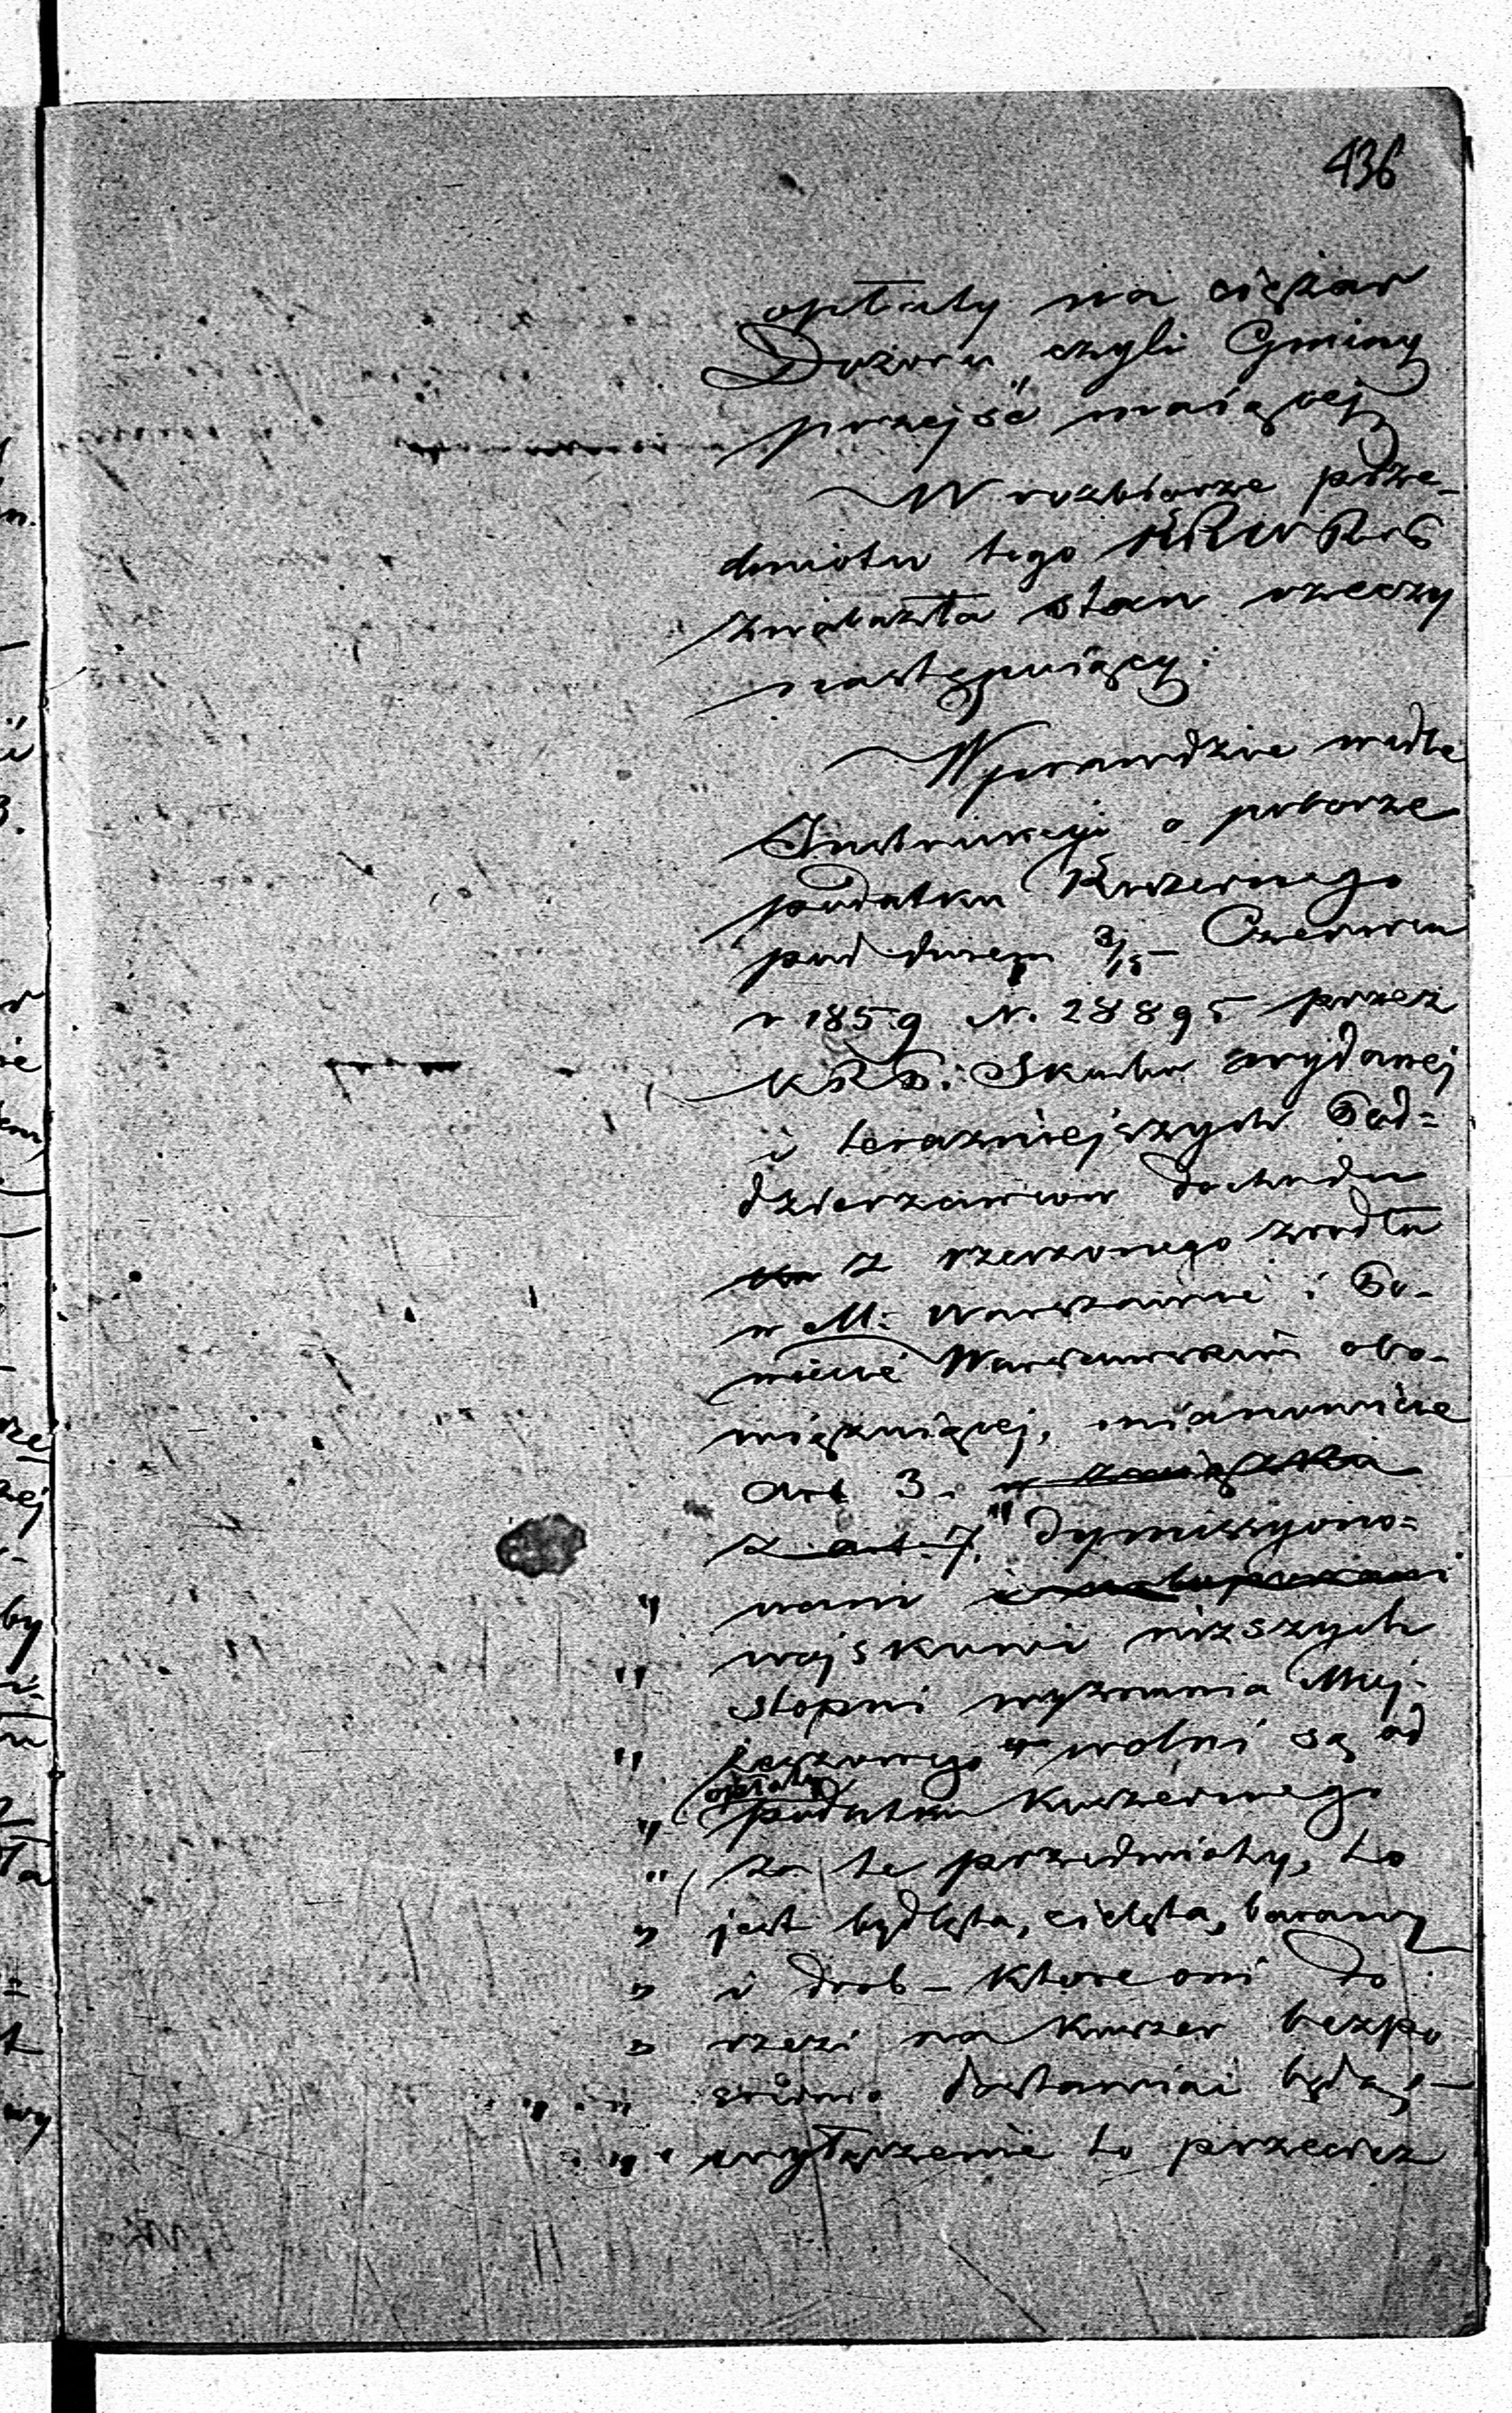 436
opłaty na ciężar
Dozoru czyli Gminy
przejść maiącej
W rozbiorze prze-
dmiotu tego KRW
znalazła stan rzeczy
następuiący:
Wprawdzie wedle
Instrukcyi o poborze
podatku Koszernego
pod dniem 3/15 Czerwca
r 1859 N. 28895 przez
KRP: Skarbu wydanej
i teraźniejszych Pod=
dzierzawców dochodu
z rzeczonego zrodła
w M: Warszawie i Po-
wiecie Warszawskim obo-
wiązuiącej, mianowicie
Art 3. w związku
z art. 7. "Dymissyono=
" wani
" wojskowi niższych
stopni wyznania Moj-
" żeszowego wolni są od
opłaty
" podatku koszernego
" za te przedmioty, to
" jest bydlęta, cielęta, barany
" i drob – ktore oni do
" rzezi na koszer bezpo
" srednio dostawiać będą, –
" wyłączenie to przecież